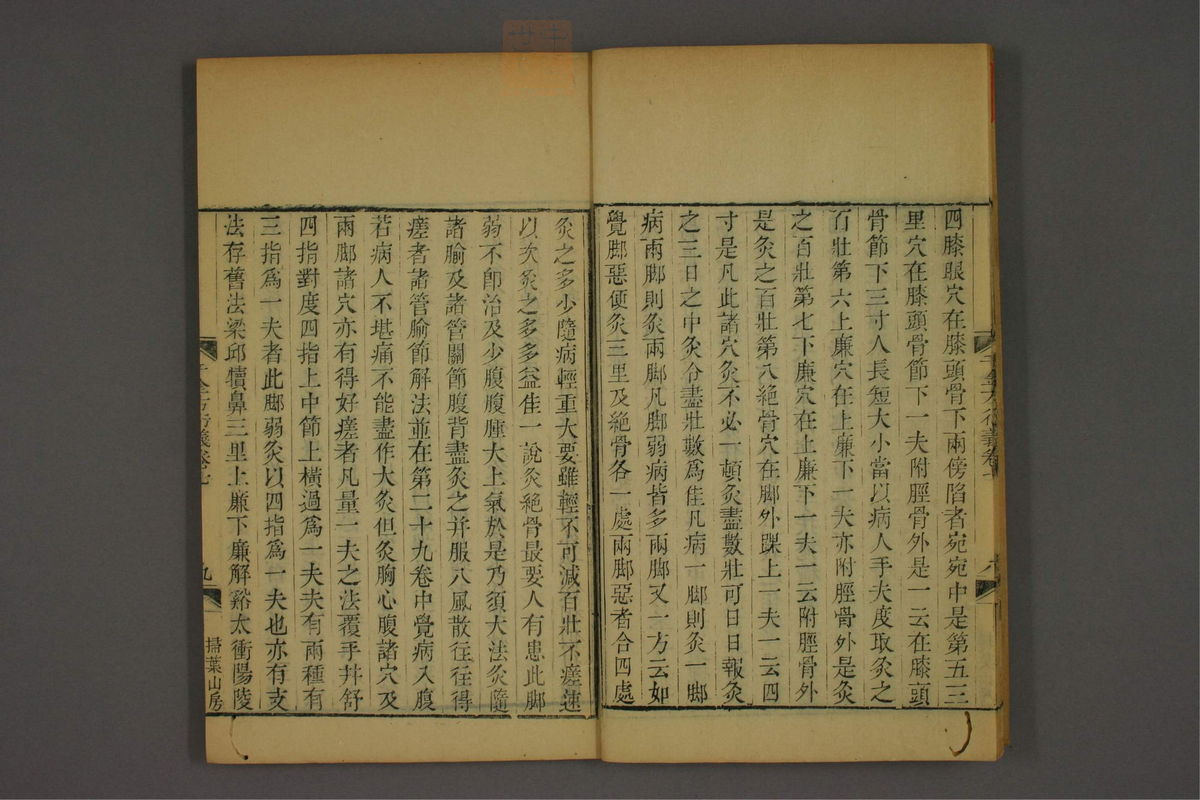 四膝眼穴在膝頭骨下兩傍陷者宛宛中是第五三
里穴在膝頭骨節下一夫附脛骨外是一云在膝頭
骨節下三寸人長短大小當以病人手夫度取灸之
百壯第六上廉穴在上廉下一夫亦附脛骨外是灸
之百壯第七下廉穴在上廉下一夫一云附脛骨外
是灸之百壯第八絕骨穴在脚外踝上一夫一云四
寸是凡此諸穴灸不必一頓灸盡數壯可日日報灸
之三日之中灸令盡壯數爲佳凡病一脚則灸一脚
病兩脚則灸兩脚凡脚弱病皆多兩脚又一方云如
覺脚惡便灸三里及絕骨各一處兩脚惡者合四處
灸之多少隨病輕重大要雖輕不可減百壯不瘥速
以次灸之多多益佳一說灸絕骨最要人有患此脚
弱不卽治及少腹腹腫大上氣於是乃須大法灸隨
諸腧及諸管關節腹背盡灸之并服八風散往往得
瘥者諸管腧節解法並在第二十九卷中覺病入腹
若病人不堪痛不能盡作大灸但灸胸心腹諸穴及
兩脚諸穴亦有得好瘥者凡量一夫之法覆手并舒
四指對度四指上中節上橫過爲一夫夫有兩種有
三指爲一夫者此脚弱灸以四指爲一夫也亦有支
法存舊法梁邱犢鼻三里上廉下廉解谿太衝陽陵
千金方衍義卷七
九
掃葉山房